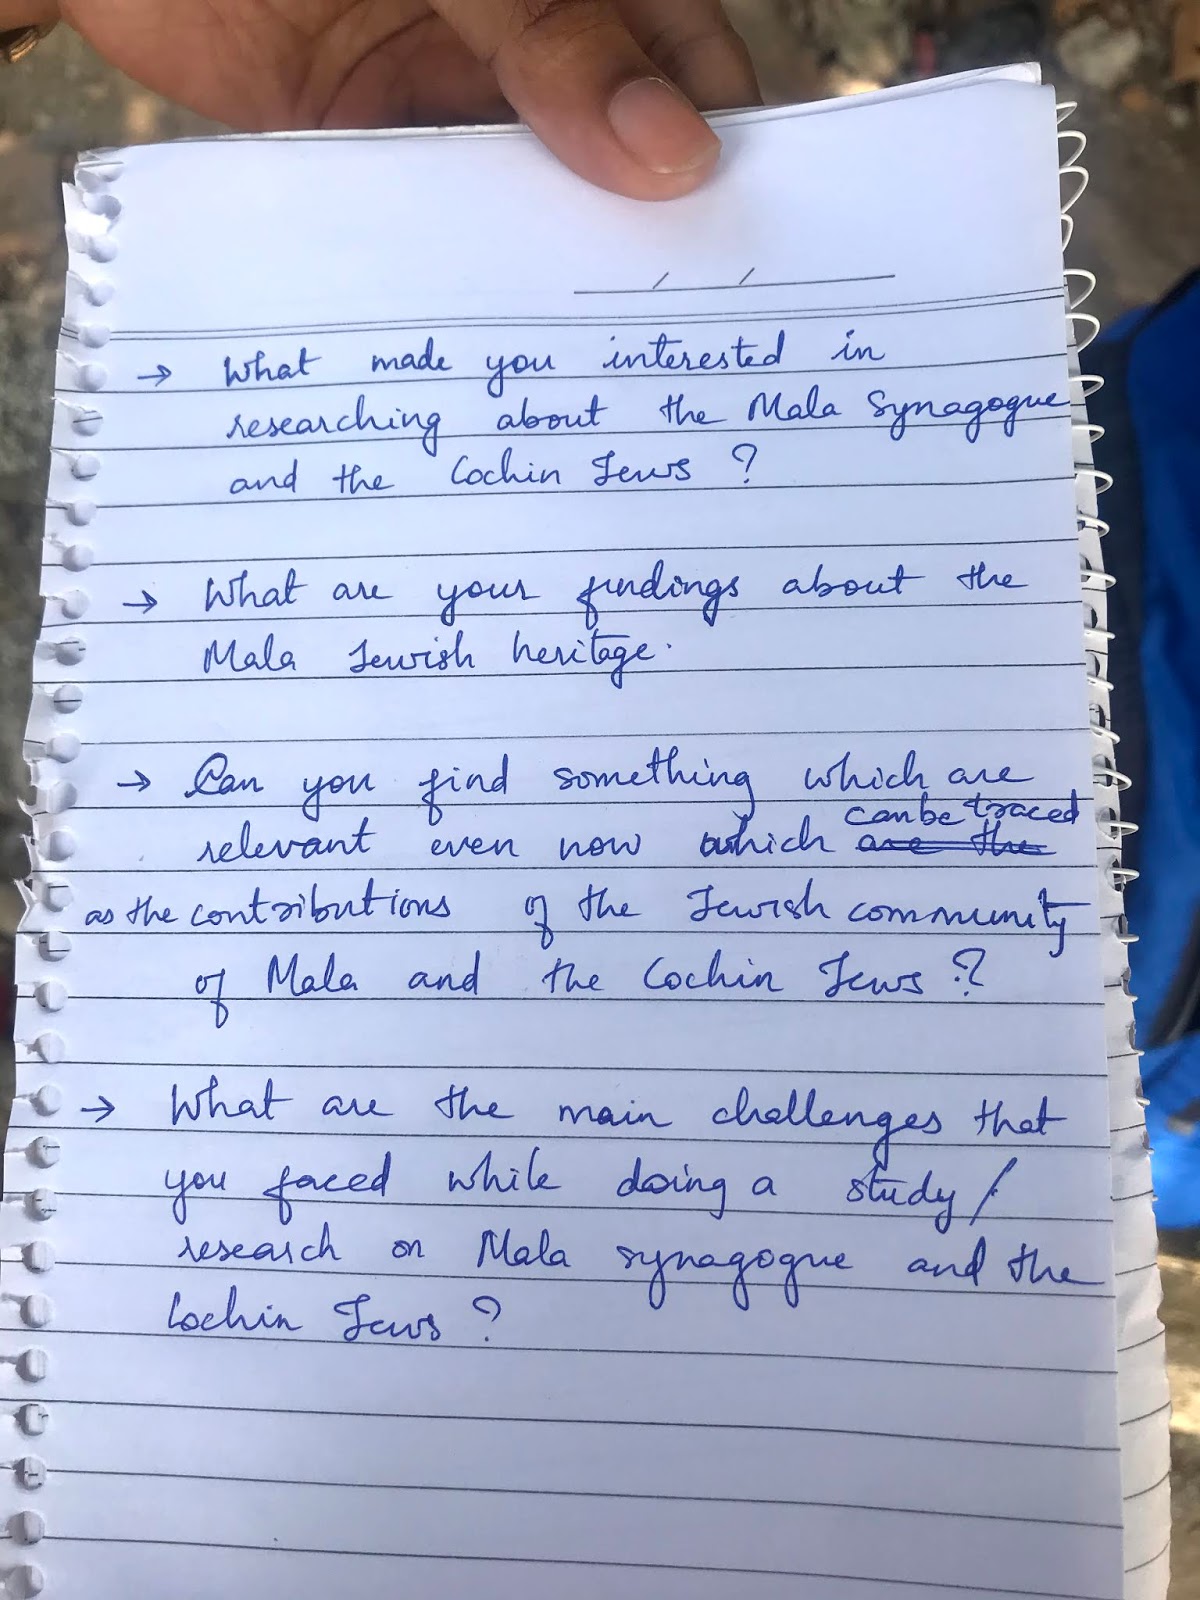 → What made you interested in
researching about the Mala Synagogue
and the Cochin Jews ?
→ What are your findings about the
Mala Jewish heritage.
→ Can you find something which are
relevant even now which ~~are the~~ can be traced
as the contributions of the Jewish community
of Mala and the Cochin Jews ?
→ What are the main challenges that
you faced while doing a study /
research on Mala synagogue and the
Cochin Jews ?